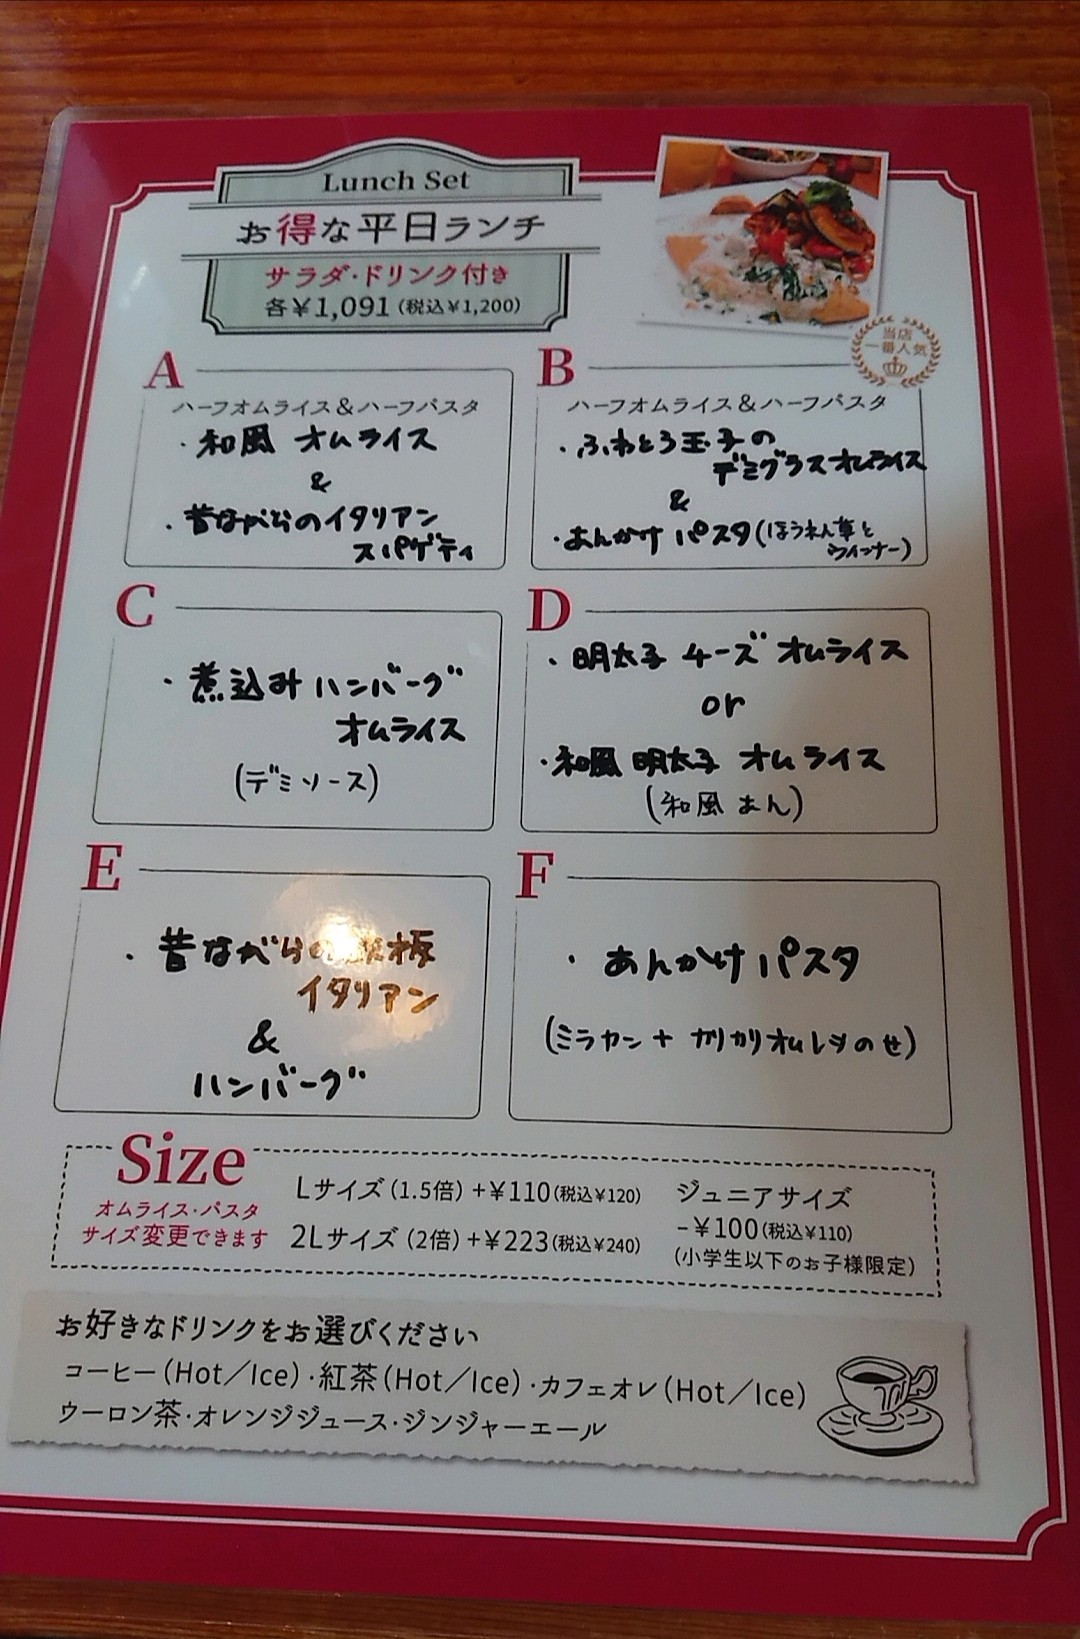 Lunch Set
お得な平日ランチ
サラダ・ドリンク付き
各¥1,091(税込¥1,200)
当店
一番人気
A
ハーフオムライス&ハーフパスタ
・和風 オムライス
&
・昔ながらのイタリアン
スパゲティ
B
ハーフオムライス&ハーフパスタ
・ふわとろ玉子の
デミグラスオムライス
&
・あんかけ パスタ(ほうれん草と
ウインナー)
C
・煮込みハンバーグ
オムライス
(デミソース)
D
・明太子 チーズ オムライス
or
・和風 明太子 オムライス
(和風あん)
E
・昔ながらの鉄板
イタリアン
&
ハンバーグ
F
・あんかけパスタ
(ミラカン+カリカリオムレツのせ)
Size
オムライス・パスタ
サイズ変更できます
Lサイズ(1.5倍)+¥110(税込¥120)
2Lサイズ(2倍)+¥223(税込¥240)
ジュニアサイズ
-¥100(税込¥110)
(小学生以下のお子様限定)
お好きなドリンクをお選びください
コーヒー(Hot/Ice)・紅茶(Hot/Ice)・カフェオレ(Hot/Ice)
ウーロン茶・オレンジジュース・ジンジャーエール